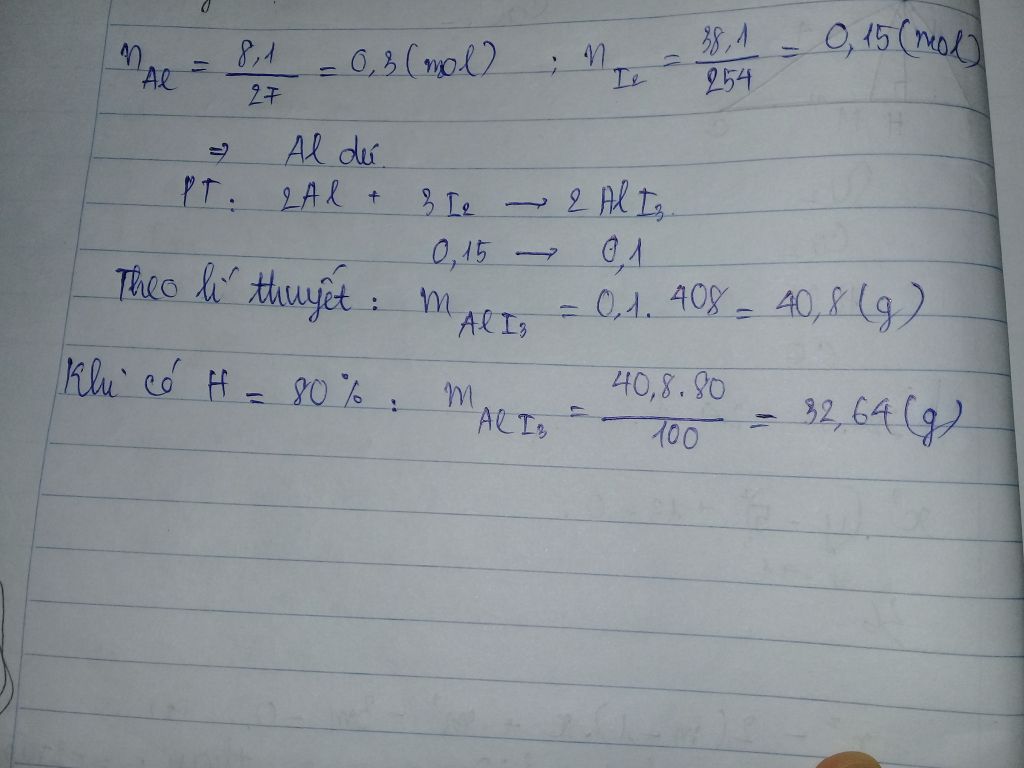 n Al = 8,1/27 = 0,3 (mol) ; n I2 = 38,1/254 = 0,15 (mol)
⇒ Al dư.
PT: 2Al + 3I2 → 2AlI3.
0,15 → 0,1
Theo lí thuyết : m AlI3 = 0,1. 408 = 40,8 (g)
Khi có H = 80% : m AlI3 = 40,8.80/100 = 32,64 (g)